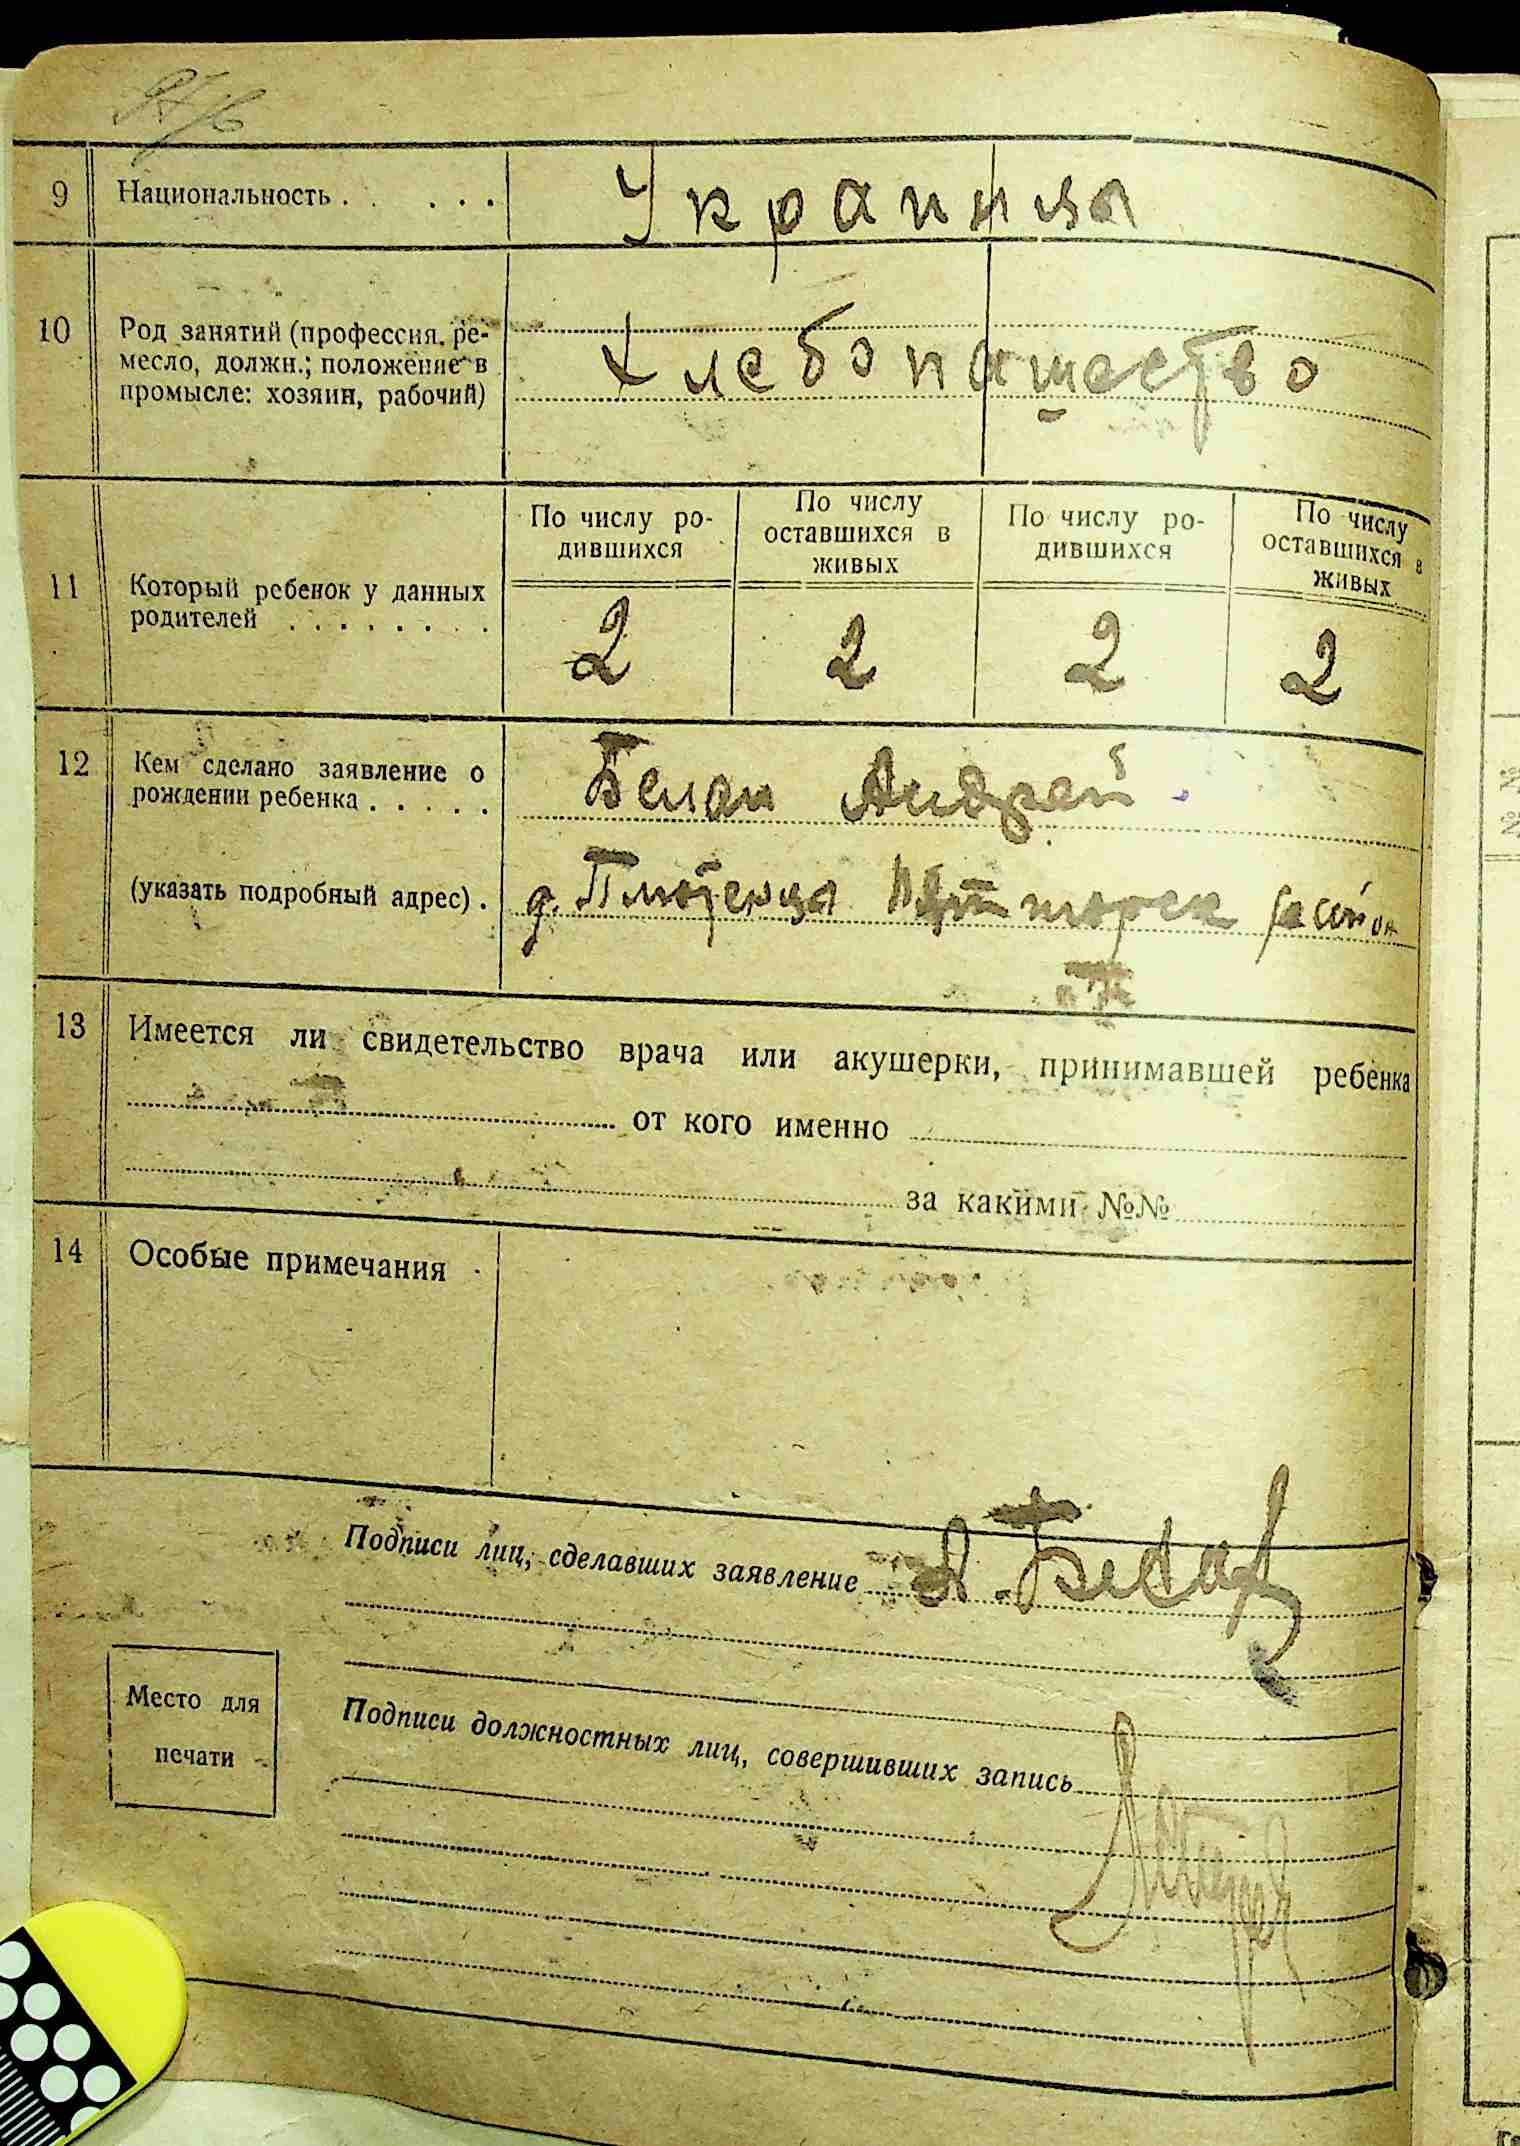 9 Национальность . . . . . Украинцы
10 Род занятий (профессия, ре-
месло, должн.; положение в
промысле: хозяин, рабочий)
Хлебопашество
11 Который ребенок у данных
родителей . . . . . . . .
По числу ро-
дившихся
По числу
оставшихся в
живых
По числу ро-
дившихся
По числу
оставшихся в
живых
2 2 2 2
12 Кем сделано заявление о
рождении ребенка . . . . .
Белан Андрей
(указать подробный адрес) .
д. район
13 Имеется ли свидетельство врача или акушерки, принимавшей ребенка
от кого именно
за какими №№
14 Особые примечания
Подписи лиц, сделавших заявление
Место для
печати
Подписи должностных лиц, совершивших запись